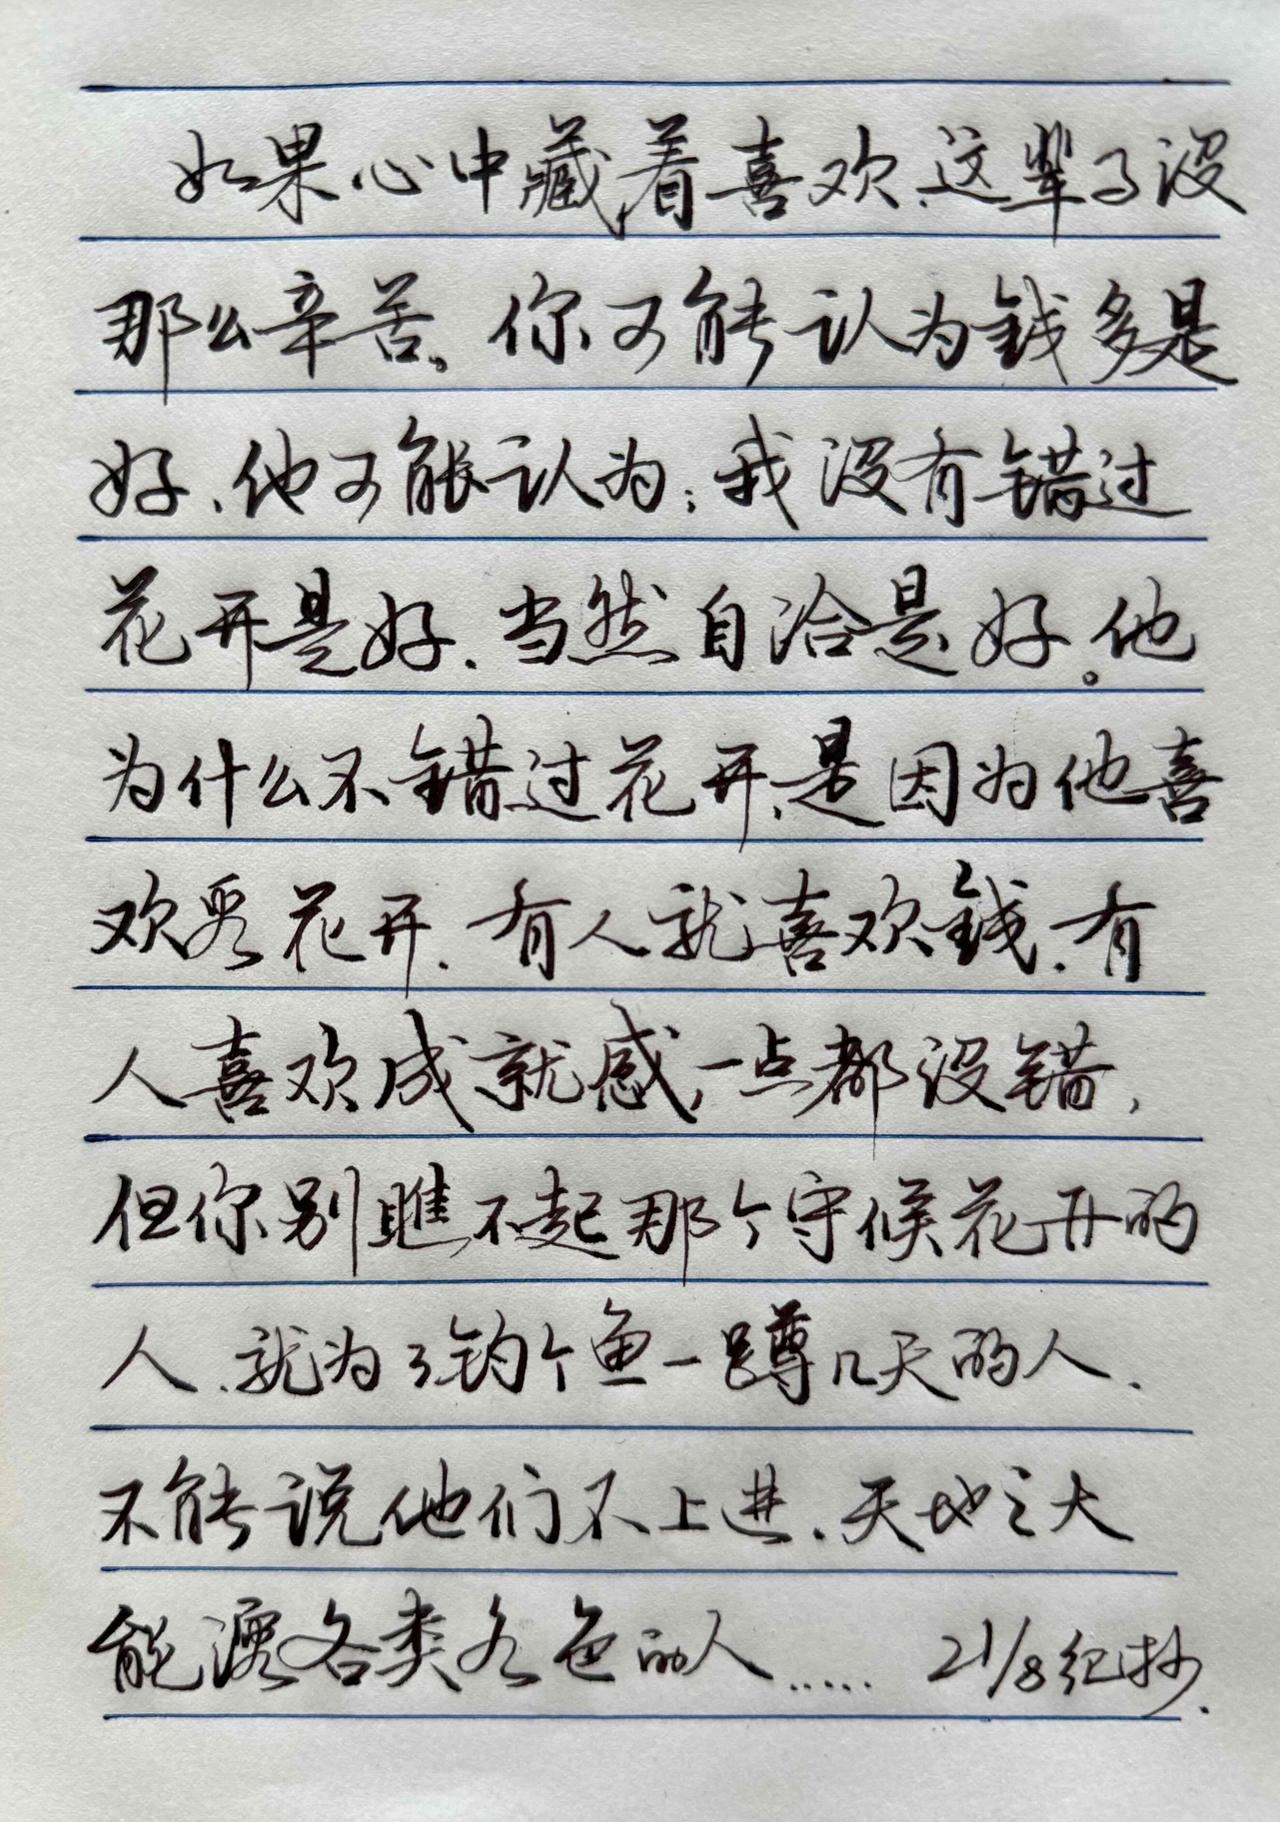 如果心中藏着喜欢、这辈子没
那么辛苦。你可能认为钱多是
好、他可能认为：我没有错过
花开是好、当然自洽是好。他
为什么不错过花开、是因为他喜
欢看花开、有人就喜欢钱、有
人喜欢成就感，一点都没错，
但你别瞧不起那个守候花开的
人、就为了钓个鱼一蹲几天的人、
不能说他们不上进、天地之大
能 各类各色的人…… 21/8纪抄、